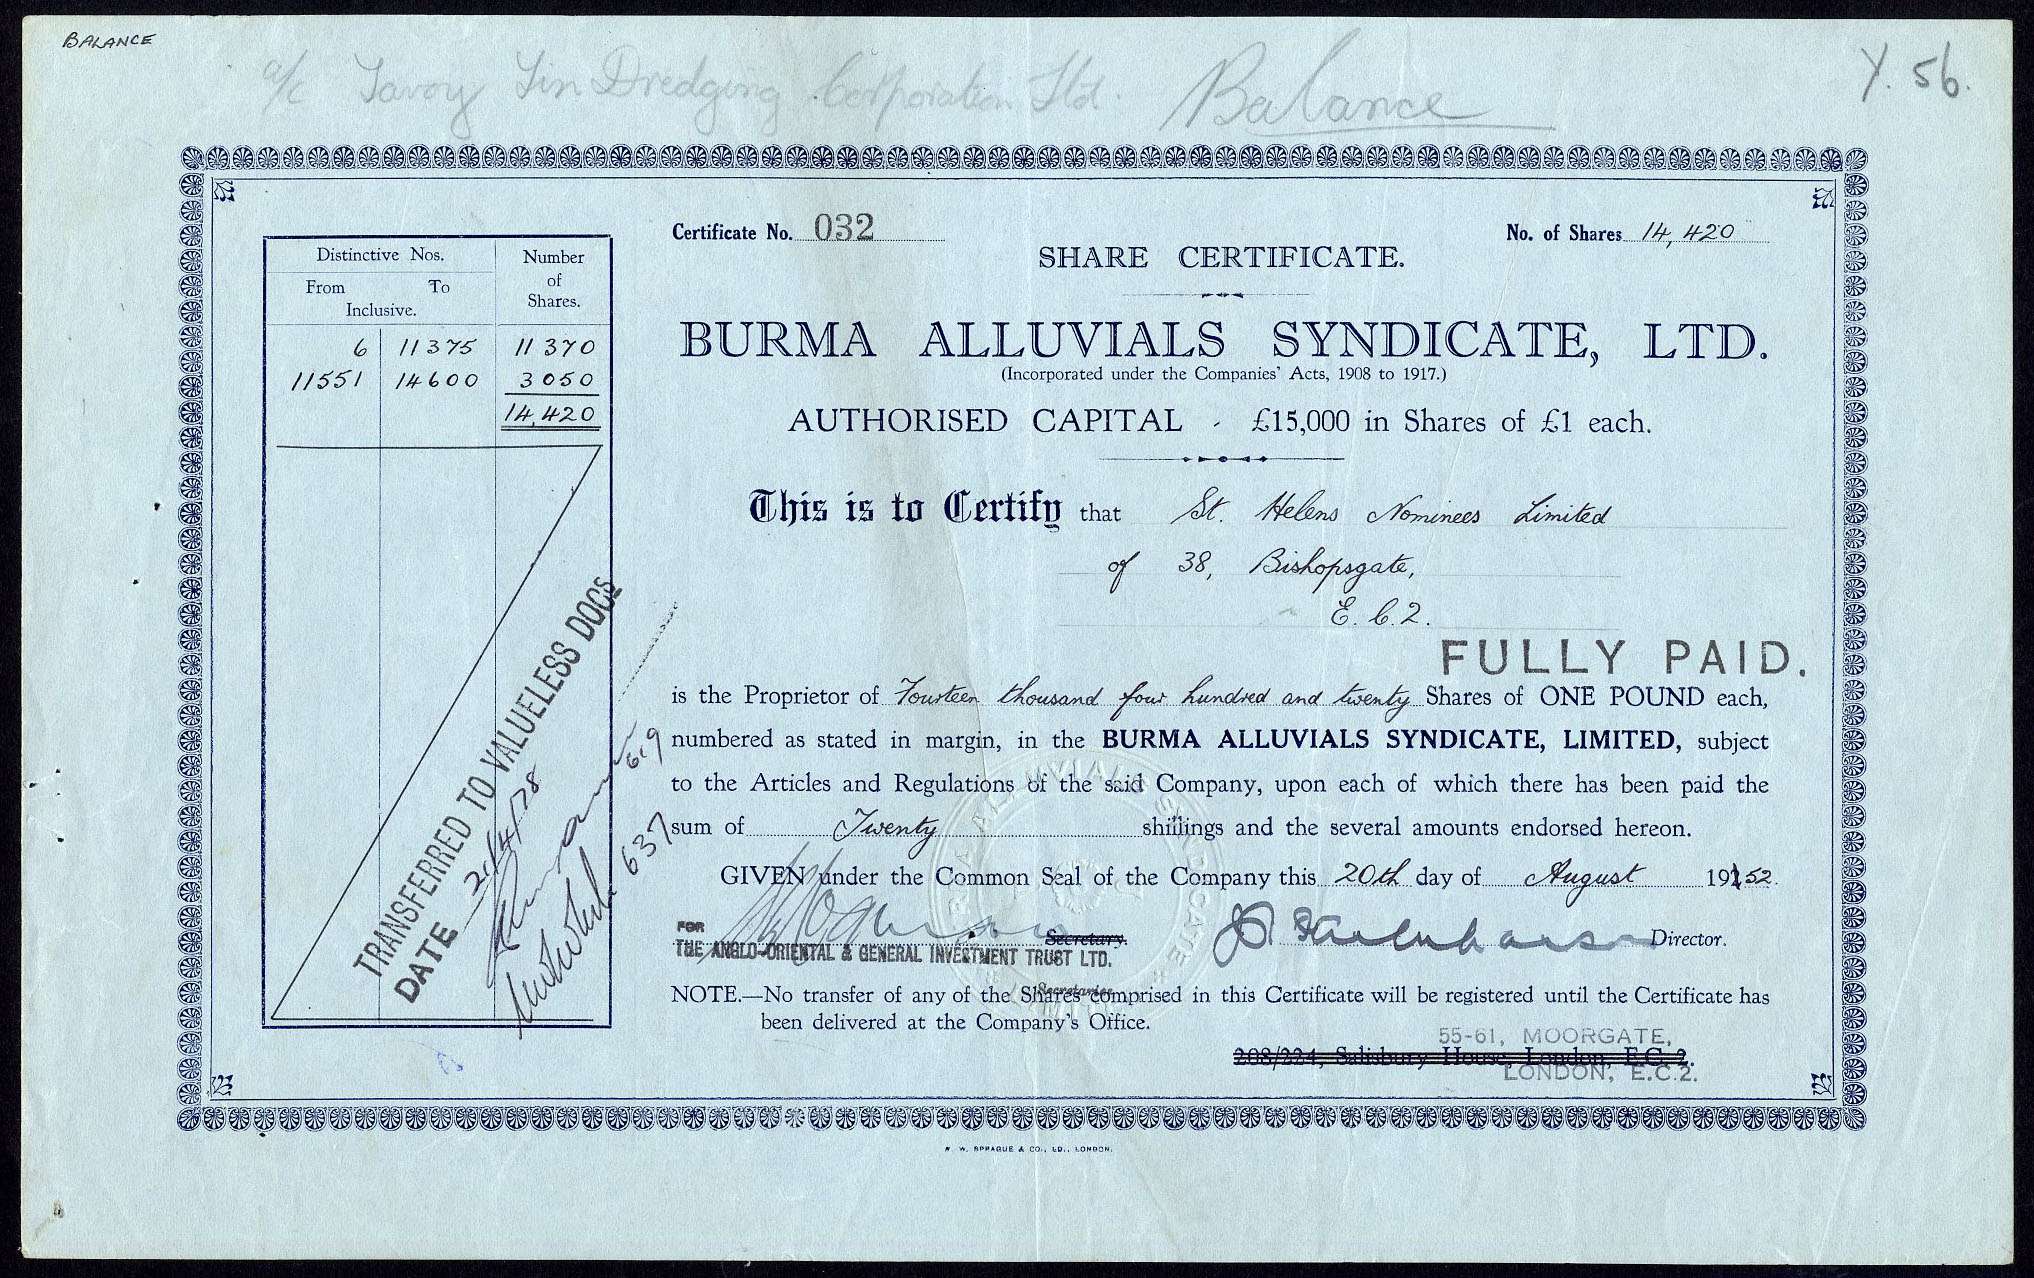 BALANCE
a/c Tavoy Tin Dredging Corporation Ltd. Balance
Y. 56.
Certificate No. 032
No. of Shares 14,420
SHARE CERTIFICATE.
BURMA ALLUVIALS SYNDICATE, LTD.
(Incorporated under the Companies' Acts, 1908 to 1917.)
AUTHORISED CAPITAL - £15,000 in Shares of £1 each.
Distinctive Nos. Number
of
Shares.
From To
Inclusive.
6 11375 11370
11551 14600 3050
14,420
This is to Certify that St. Helens Nominees Limited
of 38, Bishopsgate,
E.C.2.
FULLY PAID.
is the Proprietor of Fourteen thousand four hundred and twenty Shares of ONE POUND each,
numbered as stated in margin, in the BURMA ALLUVIALS SYNDICATE, LIMITED, subject
to the Articles and Regulations of the said Company, upon each of which there has been paid the
sum of Twenty shillings and the several amounts endorsed hereon.
GIVEN under the Common Seal of the Company this 20th day of August 1952.
Secretary.
FOR
THE ANGLO-ORIENTAL & GENERAL INVESTMENT TRUST LTD.
Secretaries
Director.
NOTE.—No transfer of any of the Shares comprised in this Certificate will be registered until the Certificate has
been delivered at the Company's Office.
55-61, MOORGATE,
208/224, Salisbury House, London, E.C. 2.
LONDON, E.C.2.
TRANSFERRED TO VALUELESS DOCS
DATE 21/4/78
619
637
W. W. SPRAGUE & CO., LD., LONDON.